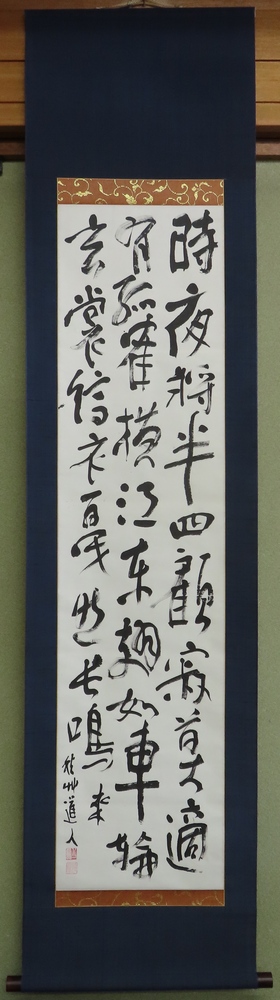 時夜将半四顧寂寥適
有孤鶴横江東翅如車輪
玄裳縞衣戛然長鳴 来
艸道人